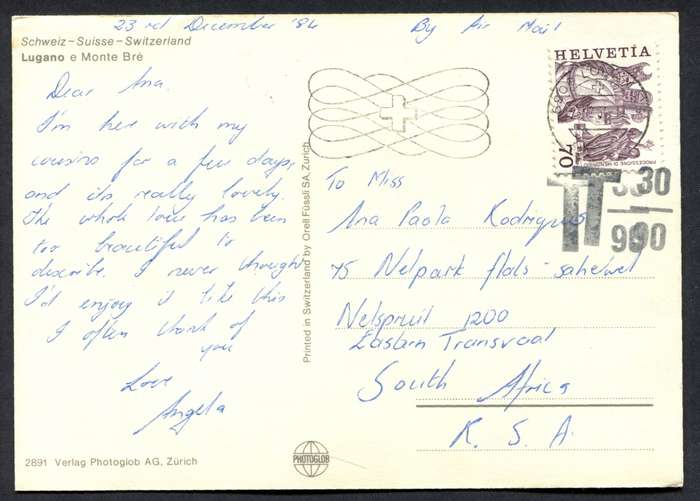 23rd December '84
By Air Mail
Schweiz – Suisse – Switzerland
Lugano e Monte Brè
Dear Ana.
I'm here with my
cousins for a few days,
and its really lovely.
The whole tour has been
too beautiful to
describe. I never thought
I'd enjoy it like this
I often think of
you
Love
Angela
2891 Verlag Photoglob AG, Zürich
Printed in Switzerland by Orell Füssli SA, Zurich
PHOTOGLOB
HELVETIA
70
PROCESSIONE DI MENDRISIO
6901 LUGANO
TT
930
To Miss
Ana Paola Rodrigues
75 Nelpark flats -
Nelspruit 1200
Eastern Transvaal
South Africa
R. S. A.